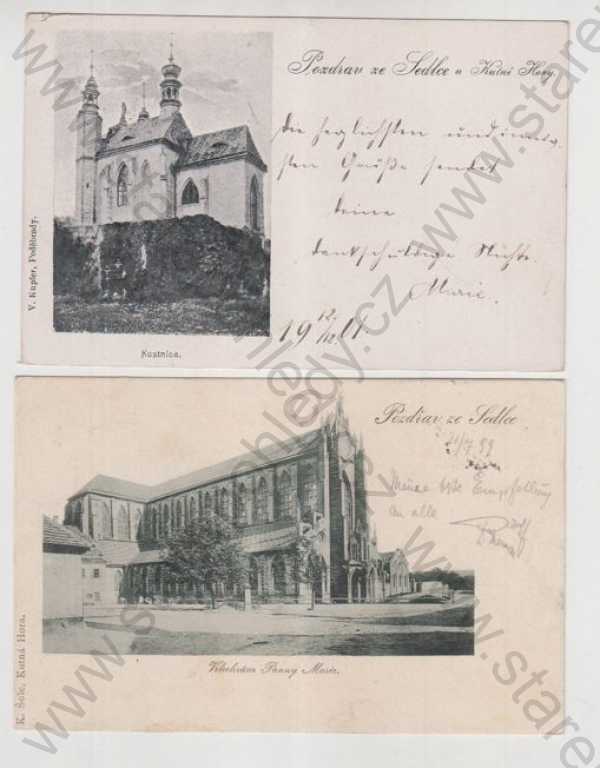 Pozdrav ze Sedlce u Kutné Hory.
Die herzlichsten und innig-
sten Grüße sendet
deine
dankschuldige Nichte.
Marie.
19 12/12 01.
V. Kupfer, Poděbrady.
Kostnice.
Pozdrav ze Sedlce
21/7 99
Meine beste Empfehlung
an alle
K. Šolc, Kutná Hora.
Vchchrám Panny Marie.